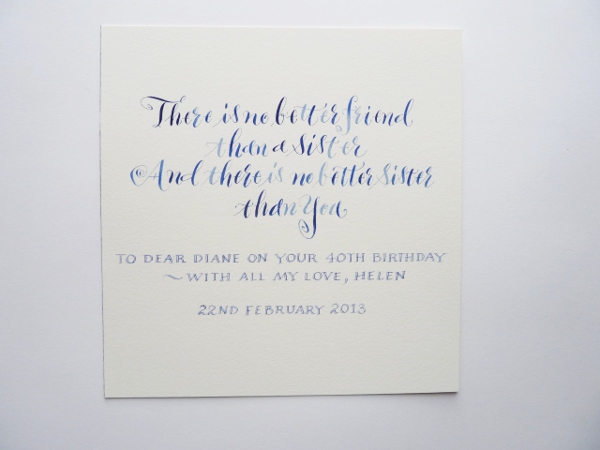 There is no better friend
than a sister
And there is no better sister
than you
TO DEAR DIANE ON YOUR 40TH BIRTHDAY
~ WITH ALL MY LOVE, HELEN
22ND FEBRUARY 2013